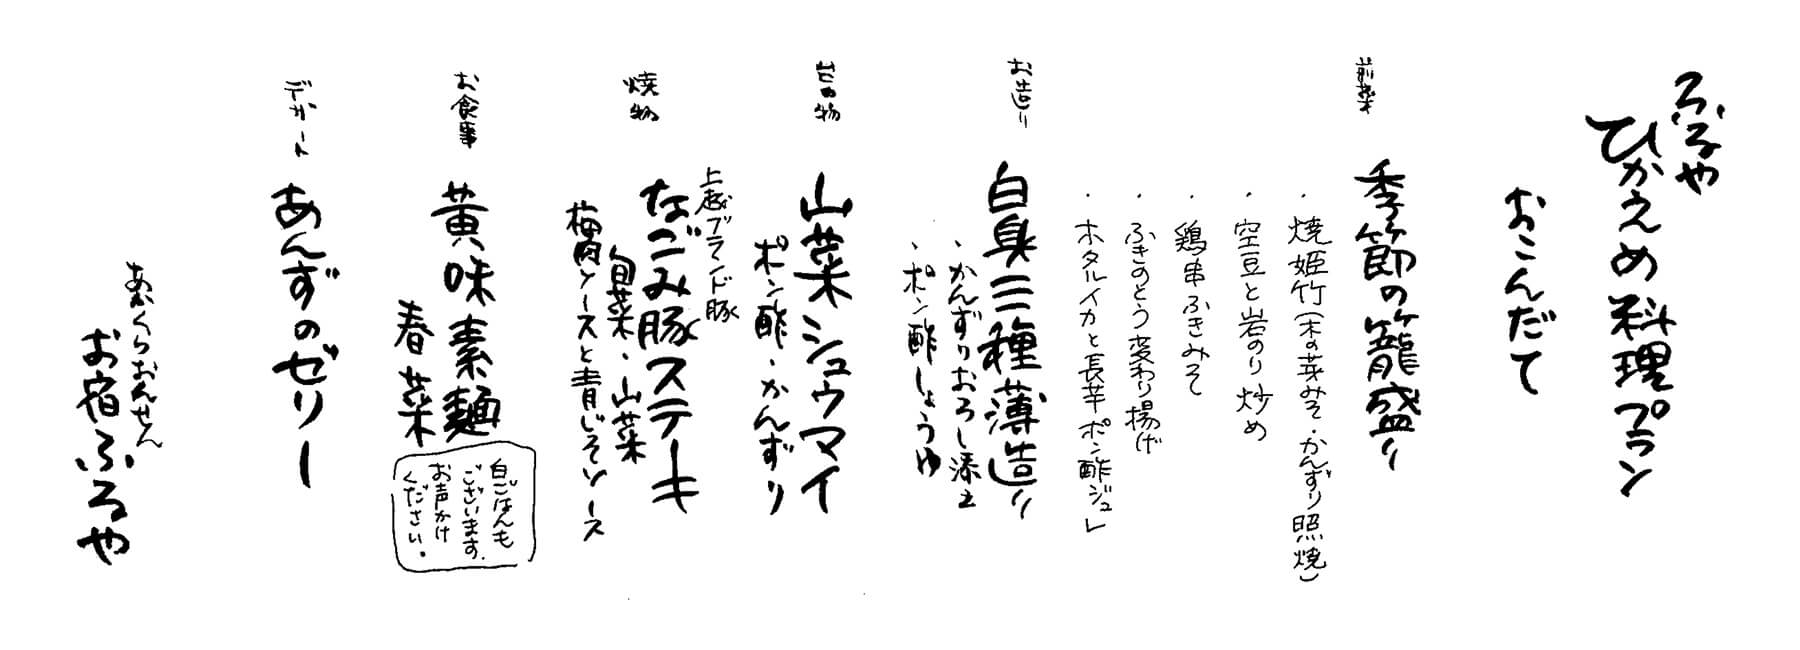 ふるや
ひかえめ料理プラン
おこんだて
前菜
季節の籠盛り
・焼姫竹(木の芽みそ・かんずり照焼)
・空豆と岩のり炒め
・鶏串ふきみそ
・ふきのとう変わり揚げ
・ホタルイカと長芋ポン酢ジュレ
お造り
白身三種薄造り
・かんずりおろし添え
・ポン酢しょうゆ
台の物
山菜シュウマイ
ポン酢・かんずり
焼物
上越ブランド豚
なごみ豚ステーキ
旬菜・山菜
梅肉ソースと青じそソース
お食事
黄味素麺
春菜
白ごはんも
ございます.
お声かけ
ください.
デザート
あんずのゼリー
あかくらおんせん
お宿ふるや